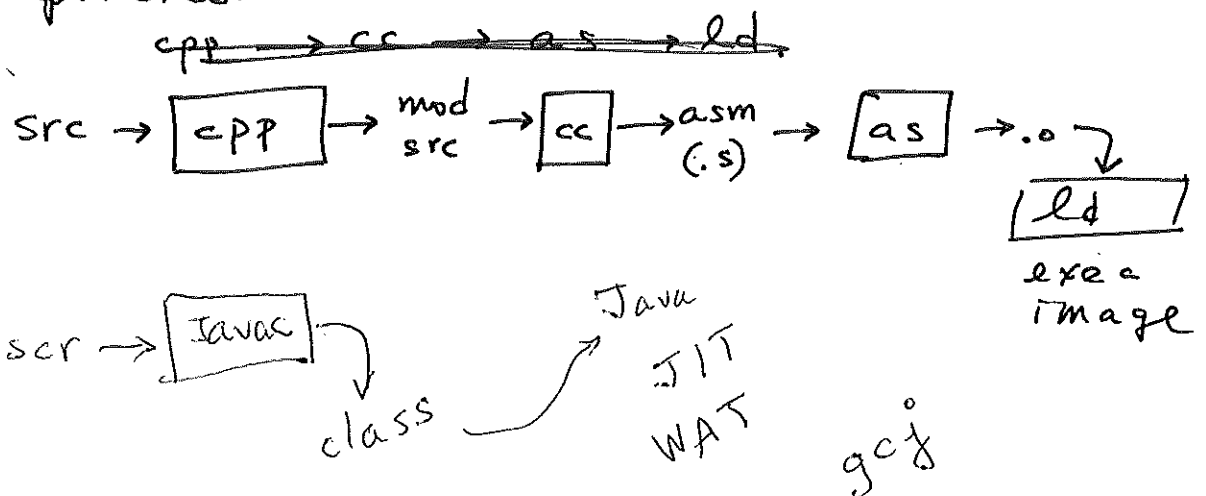 cpp → cc → as → ld
src → cpp → mod src → cc → asm (.s) → as → .o
ld
exec image
scr → Javac
class
Java
JIT
WAT
gcj